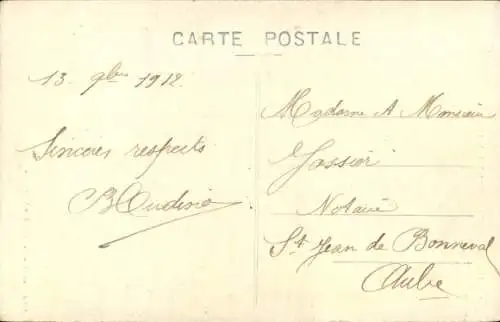 CARTE POSTALE
13 9bre 1912
Sincères respects
Madame & Monsieur
Notaire
St Jean de Bonneval
Aube